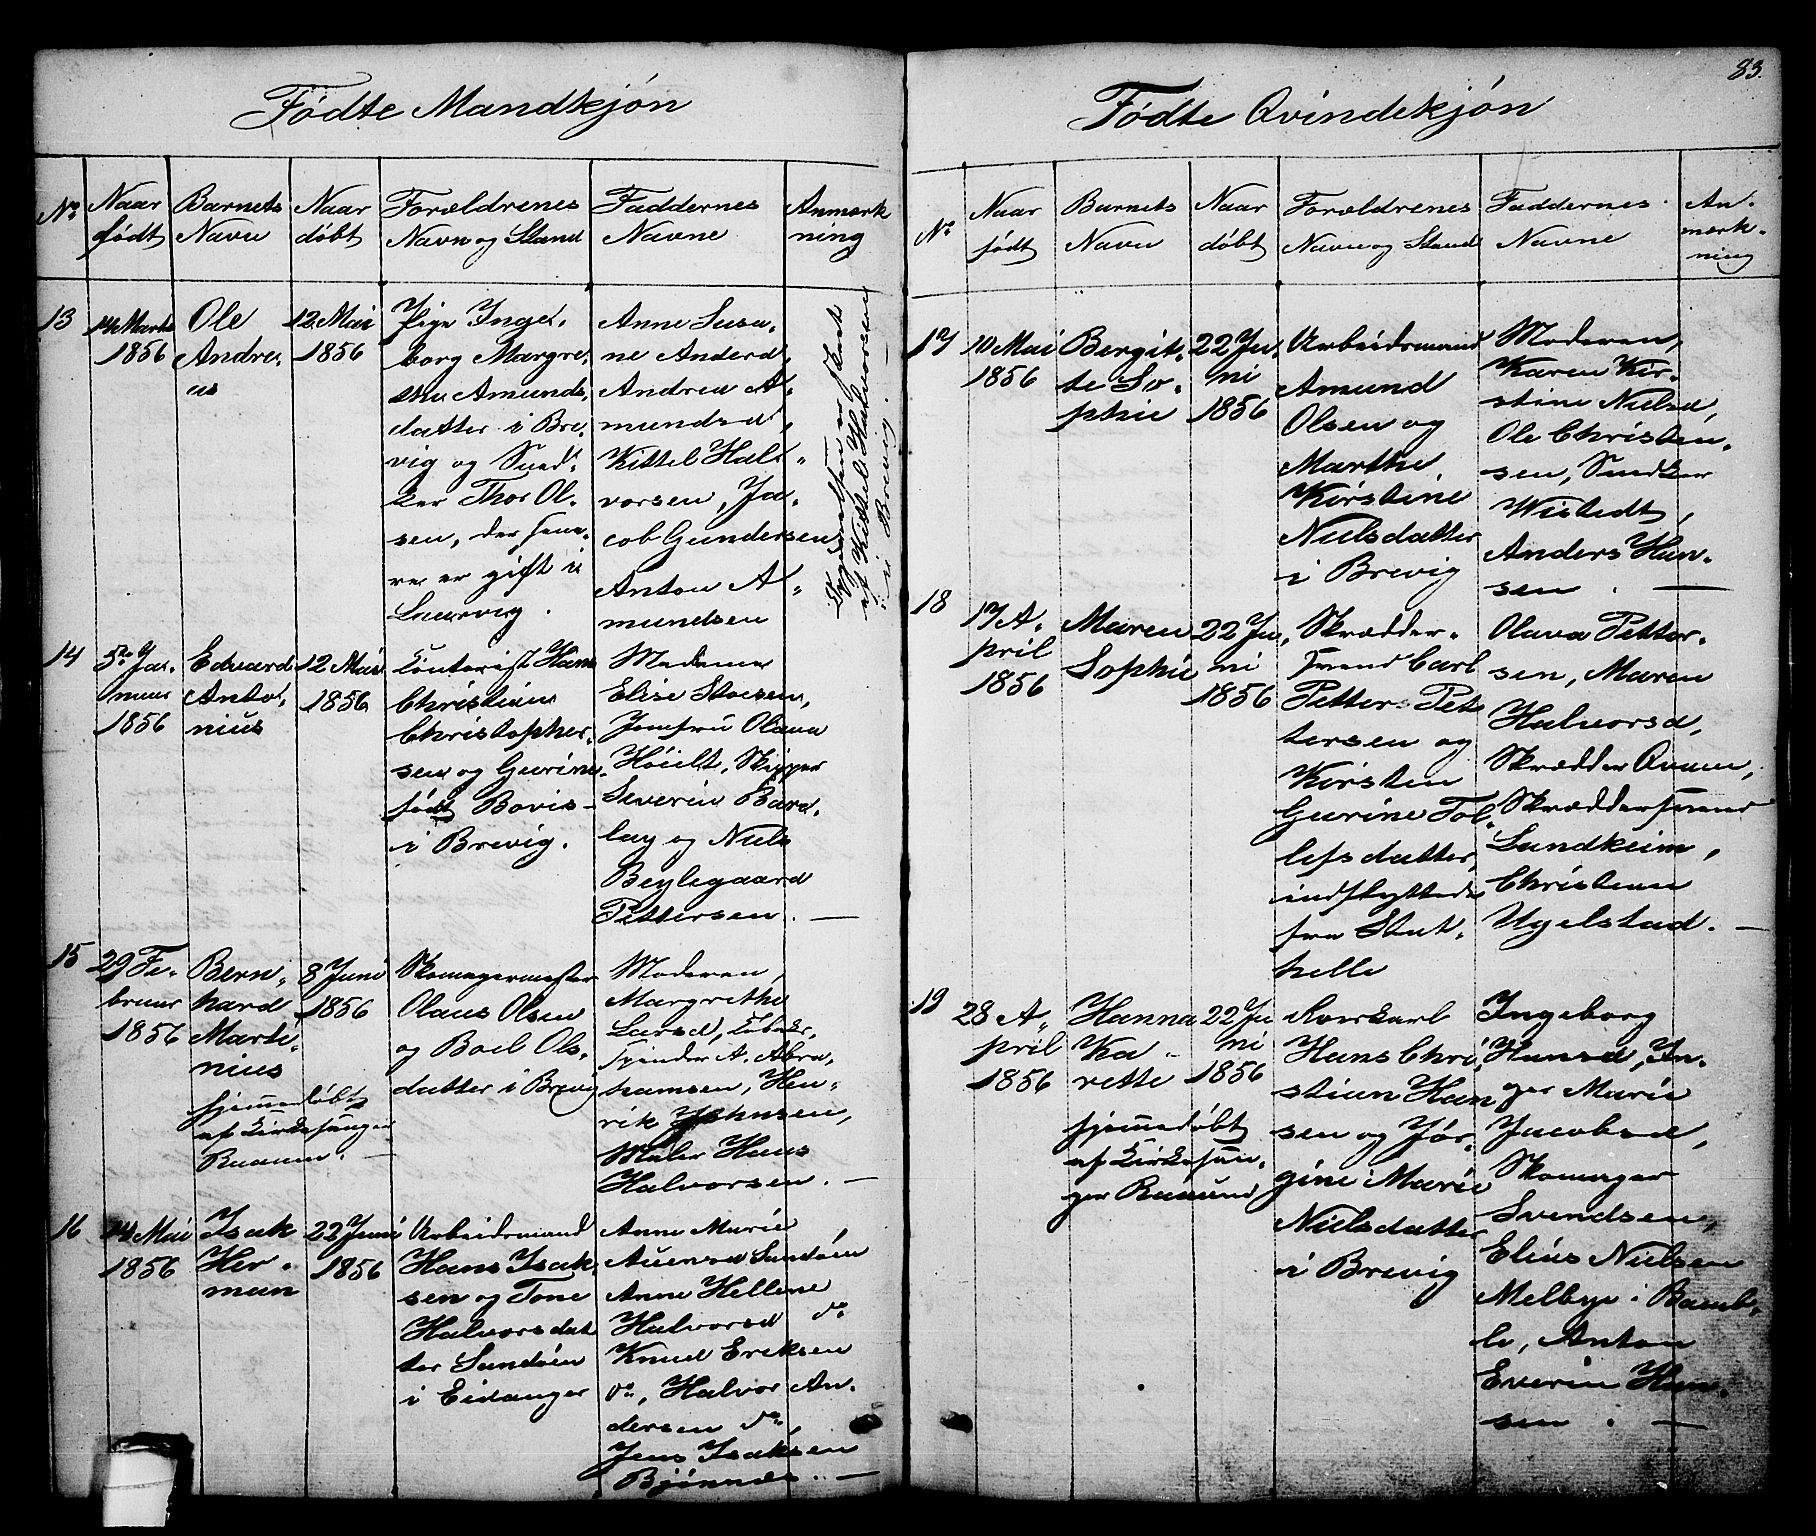 83.
Fødte Mandkjøn
No
Naar
født
Barnets
Navn
Naar
døbt
Forældrenes
Navn og Stand
Faddernes
Navne
Anmærk
ning
13
14 Marts
1856
Ole
Andre,
as
12 Mai
1856
Pige Inge,
borg Margre,
the Amunds,
datter i Bre,
vig og Sned,
ker Thor Ol,
sen, der
er gift i
Laurvig.
Anne Susa,
ne Andersd,
Andrea A,
mundsd,
Kittel Hal,
vorsen, Ja,
cob Gundersen
Anton A,
mundsen
af Kittel Halvorsen
i Brevig.
14
5te Ja,
nuar
1856
Edvard
Anto,
nius
12 Mai
1856
Contorist Hans
Christian
Christopher,
sen og Gurine
født Bovis
i Brevig.
Madame
Elise Stoesen,
Jomfru Olava
Høielt, Skipper
Severin Barc,
lay og Niels
Beylegaard
Pettersen. —
15
29 Fe,
bruar
1856
Bern,
hard
Marti,
nius
hjemmedøbt
af Kirkesanger
Raaum. —
8 Juni
1856
Skomagermester
Olaus Olsen
og Boel Ols,
datter i Brevig
Moderen,
Margrethe
Larsd,
A. Abra,
hamsen, Hen,
rik Johnsen,
Maler Hans
Halvorsen. —
16
14 Mai
1856
Isak
Her,
man
22 Juni
1856
Arbeidsmand
Hans Isak,
sen og Tone
Halvorsdat
ter Sandøen
i Eidanger
Anne Marie
Auensd Sandøen
Anne Hellene
Halvorsd do
Knud Eriksen
do, Halvor An,
dersen do
Jens Isaksen
Bjønnes. —
Fødte Qvindekjøn
No
Naar
født
Barnets
Navn
Naar
døbt
Forældrenes
Navn og Stand
Faddernes
Navne
An,
mærk,
ning
17
10 Mai
1856
Bergit,
te So,
phie
22 Ju,
ni
1856
Arbeidsmand
Amund
Olsen og
Marthe
Kirstine
Nielsdatter
i Brevig
Moderen,
Karen Kir,
stine Nielsd,
Ole Christen,
sen, Snedker
Wistedt,
Anders Han,
sen. —
18
17 A,
pril
1856
Maren
Sophie
22 Ju,
ni
1856
Skrædder,
svend Carl
Petter Pet
tersen og
Kirsten
Gurine Tol,
lefsdatter,
indflyttede
fra Stat,
helle
Olava Petter,
sen, Maren
Halvorsd,
Skrædder Qvam,
Skræddersvend
Sandkeim,
Christian
Ugelstad. —
19
28 A,
pril
1856
Hanna
Ka,
rette
hjemmedøbt
af Kirkesan,
ger Raaum
22 Ju
ni
1856
Roerskarl
Hans Chri,
stian Han
sen og Jør,
gine Marie
Nielsdatter
i Brevig
Ingeborg
Hansd, In,
ger Marie
Jacobsd,
Skomager
Svendsen,
Elias Nielsen
Melbye i Bamb,
le, Anton
Everin Han,
sen. —